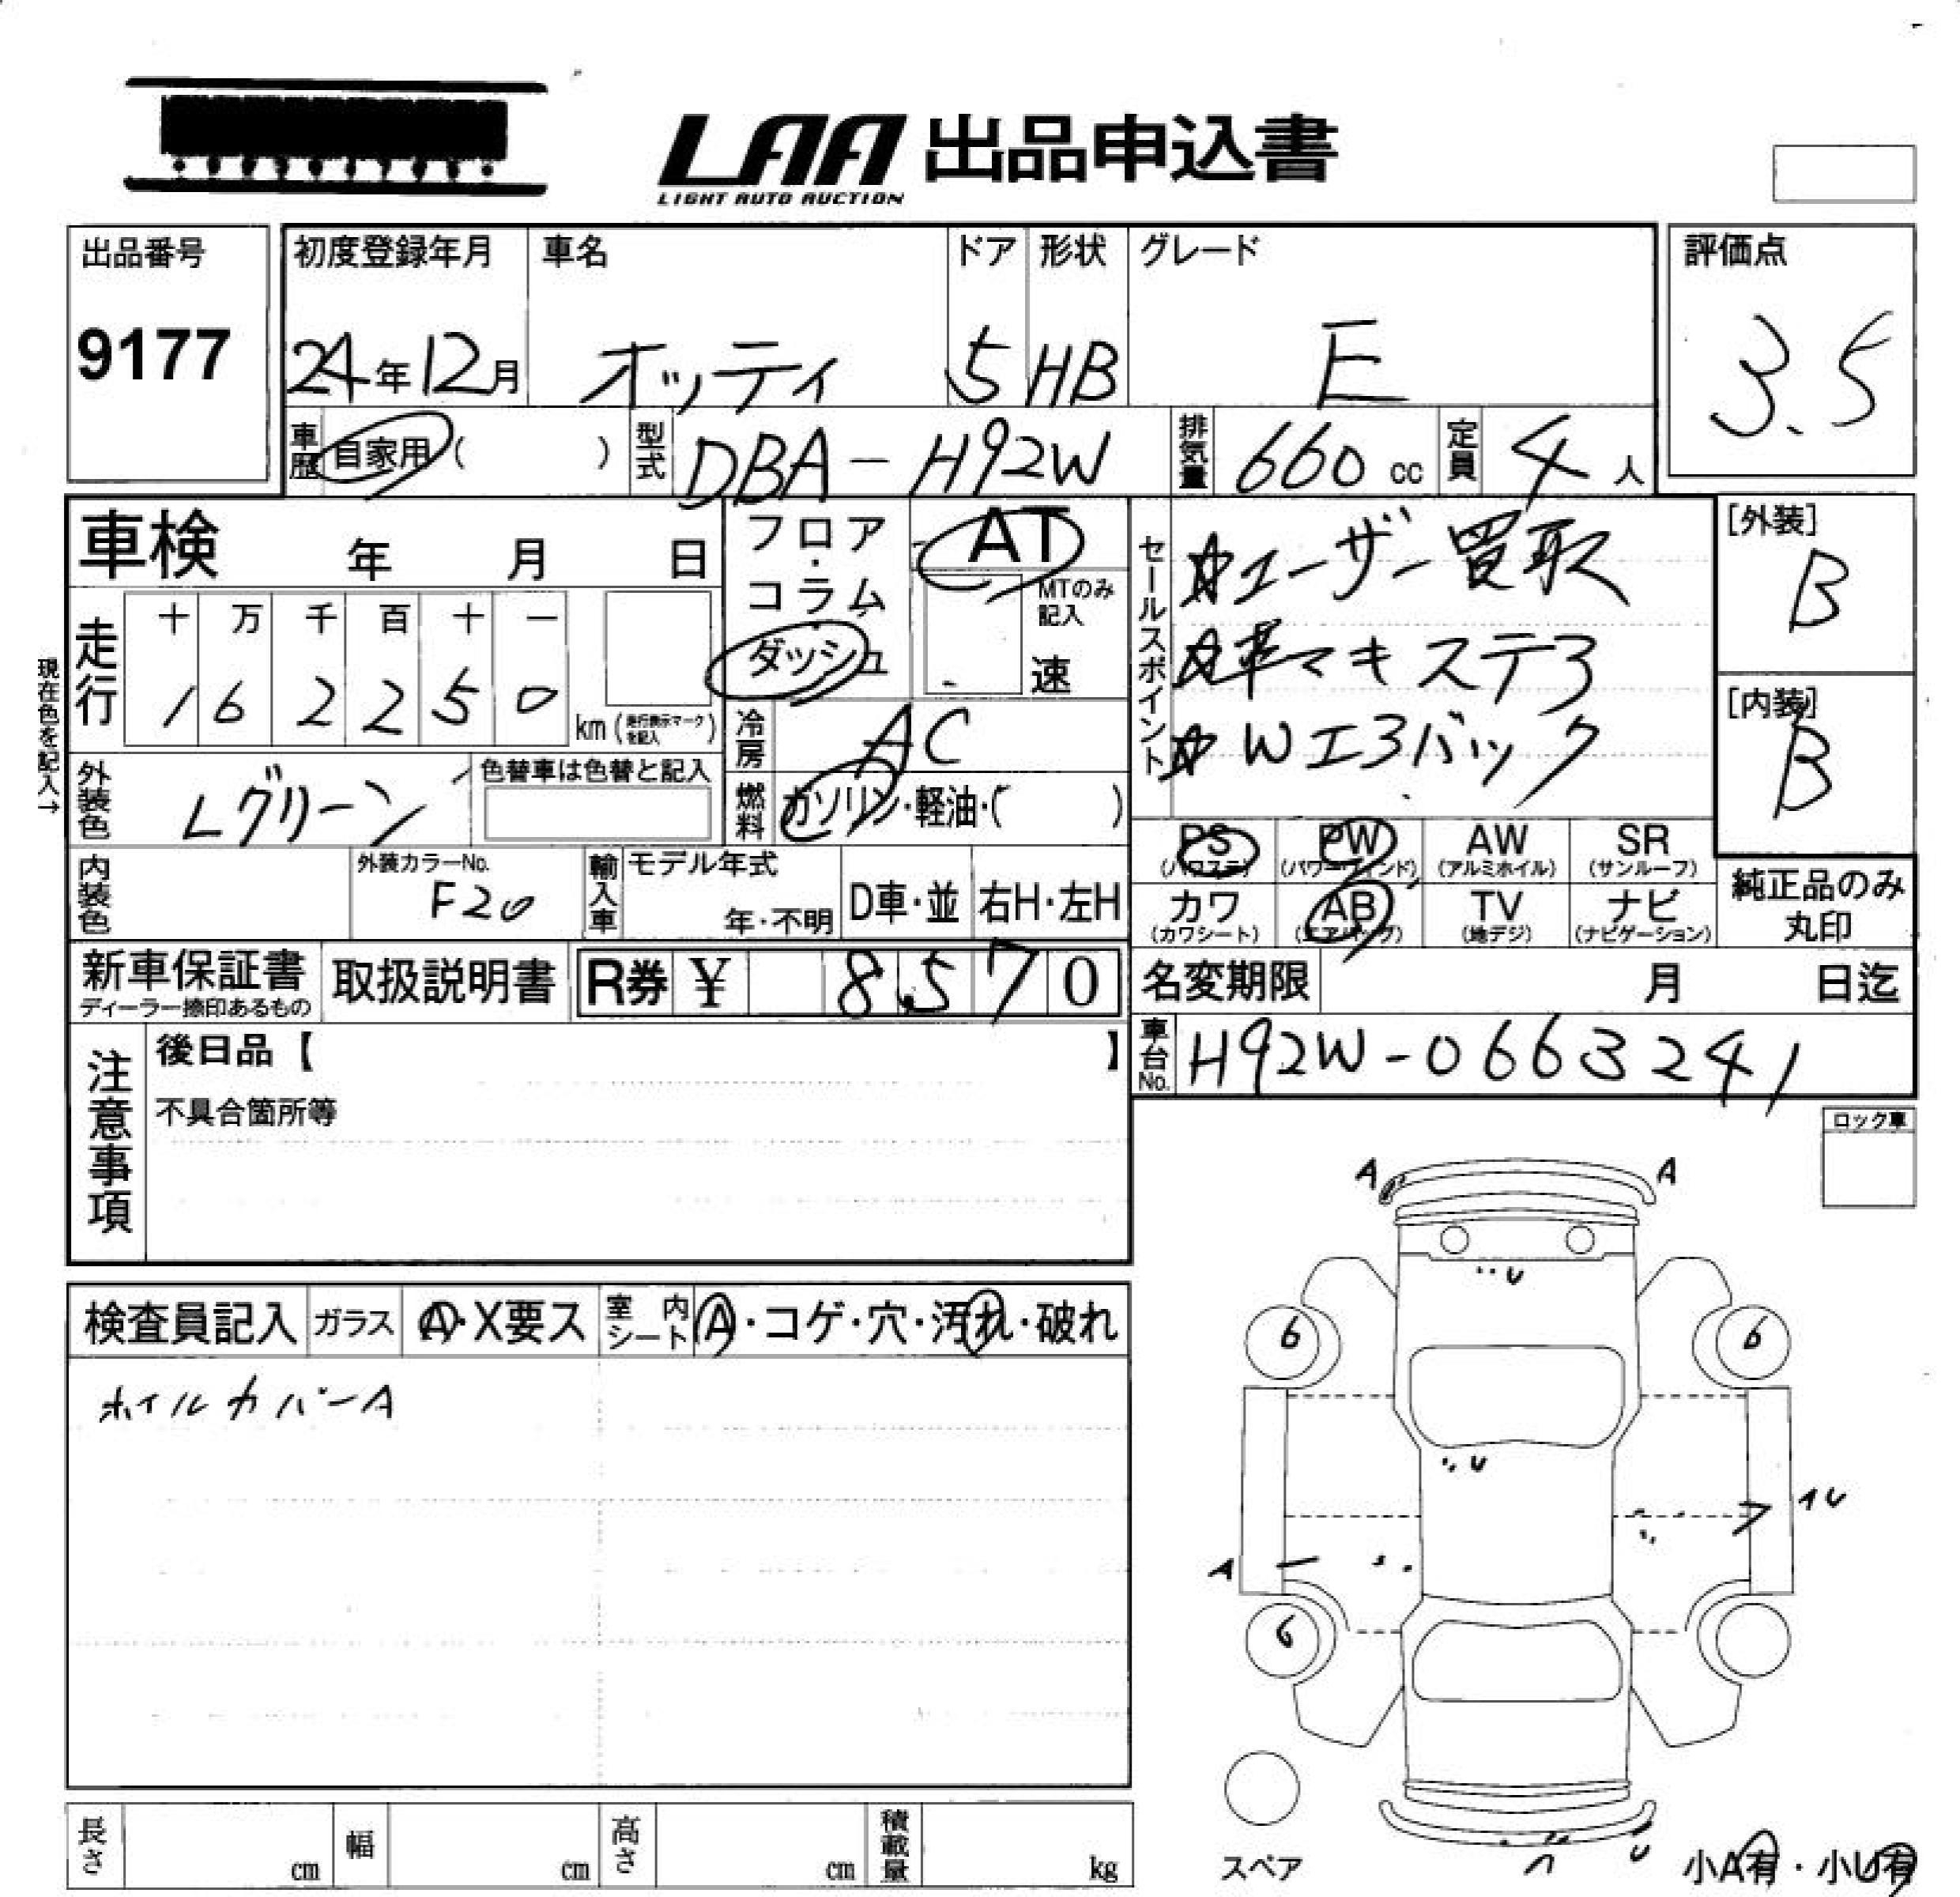 LAA 出品申込書
LIGHT AUTO AUCTION
出品番号
9177
初度登録年月
24年12月
車名
オッティ
ドア
5
形状
HB
グレード
E
評価点
3.5
車歴 自家用( )
型式 DBA-H92W
排気量 660 cc
定員 4 人
車検 年 月 日
フロア・コラム
ダッシュ
AT
MTのみ記入
速
セールスポイント
☆ユーザー買取
☆革マキステ3
☆Wエ3バック
[外装]
B
[内装]
B
現在色を記入→
走行
十 万 千 百 十 一
1 6 2 2 5 0
km(走行表示マークを記入)
冷房 AC
外装色 Lグリーン
色替車は色替と記入
燃料 ガソリン・軽油・( )
PS (パワステ)
PW (パワーウィンド)
AW (アルミホイル)
SR (サンルーフ)
カワ (カワシート)
AB (エアバッグ)
TV (地デジ)
ナビ (ナビゲーション)
純正品のみ丸印
内装色
外装カラーNo.
F20
輸入車
モデル年式
年・不明
D車・並
右H・左H
新車保証書
ディーラー捺印あるもの
取扱説明書
R券 ¥ 8,570
名変期限 月 日迄
車台No. H92W-0663241
注意事項
後日品【 】
不具合箇所等
ロック車
A A
U
検査員記入
ガラス A・X要ス
室内シート A・コゲ・穴・汚れ・破れ
6 6
ホイルカバーA
U
AU
A
6
長さ cm
幅 cm
高さ cm
積載量 kg
スペア
U
小A有・小U有